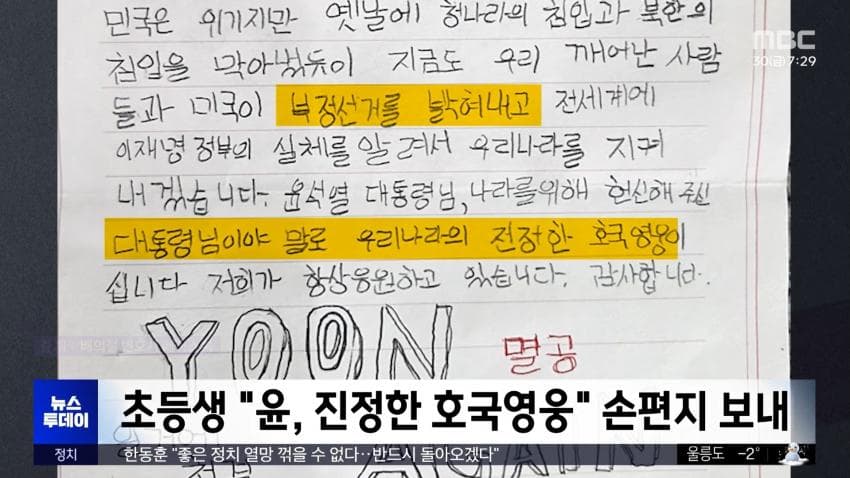 민국은 위기지만 옛날에 청나라의 침입과 북한의
MBC
30(금) 7:29
침입을 막아냈듯이 지금도 우리 깨어난 사람
들과 미국이 부정선거를 밝혀내고 전세계에
이재명 정부의 실체를 알려서 우리나라를 지켜
내겠습니다. 윤석열 대통령님, 나라를 위해 헌신해 주신
대통령님이야 말로 우리나라의 진정한 호국영웅이
십니다 저희가 항상 응원하고 있습니다. 감사합니다.
YOON
멸공
AGAIN
뉴스
투데이
초등생 "윤, 진정한 호국영웅" 손편지 보내
정치
한동훈 "좋은 정치 열망 꺾을 수 없다‥반드시 돌아오겠다"
울릉도 -2°